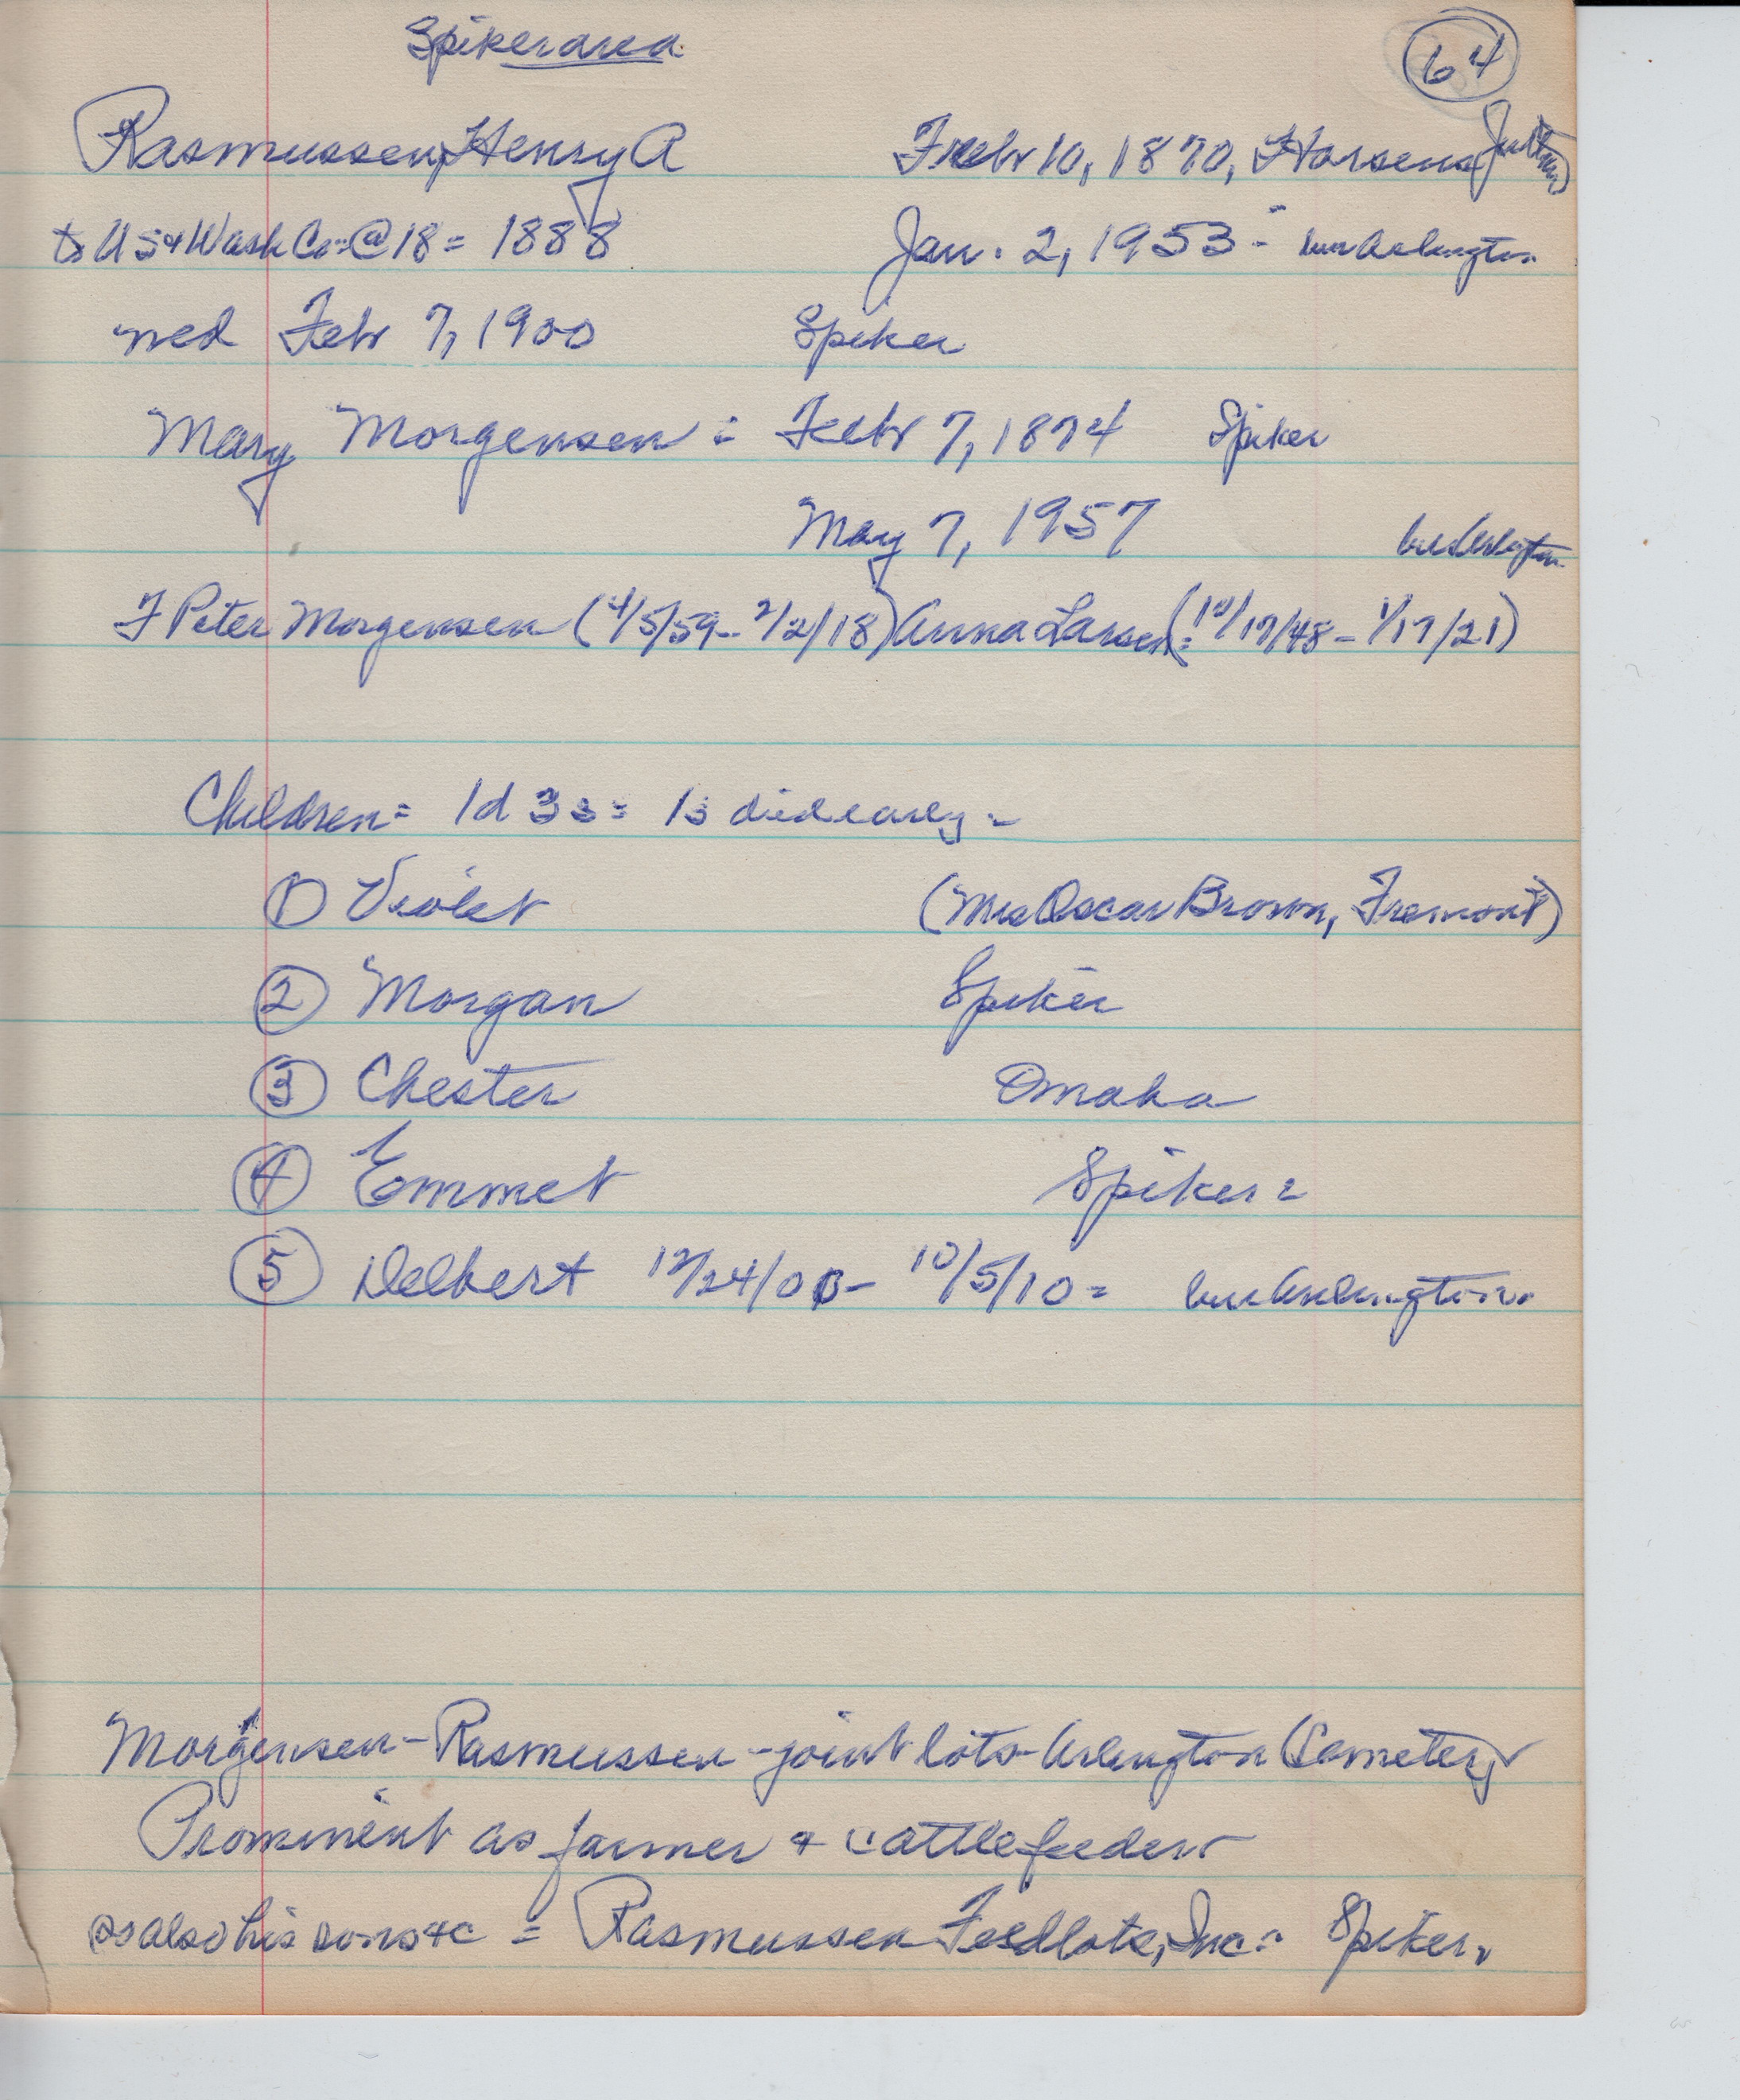 Spiker area
64
Rasmussen, Henry A Febr 10, 1870, Horsens
to US & Wash Co - @ 18 = 1888 Jan. 2, 1953 - bur Arlington
med Febr 7, 1900 Spiker
Mary Morgensen = Febr 7, 1874 Spiker
May 7, 1957 bur Arlington
F Peter Morgensen (4/5/59 - 2/2/18) Anna Larsen (= 10/17/48 - 1/17/21)
Children = 1d 3s = 1s died early -
① Violet (Mrs Oscar Brown, Fremont)
② Morgan Spiker
③ Chester Omaha
④ Emmet Spiker =
⑤ Delbert 12/24/00 - 10/5/10 = bur Arlington.
Morgensen - Rasmussen - joint lots - Arlington Cemetery
Prominent as farmer & cattlefeeder
as also his sons &c = Rasmussen Feedlots, Inc = Spiker.